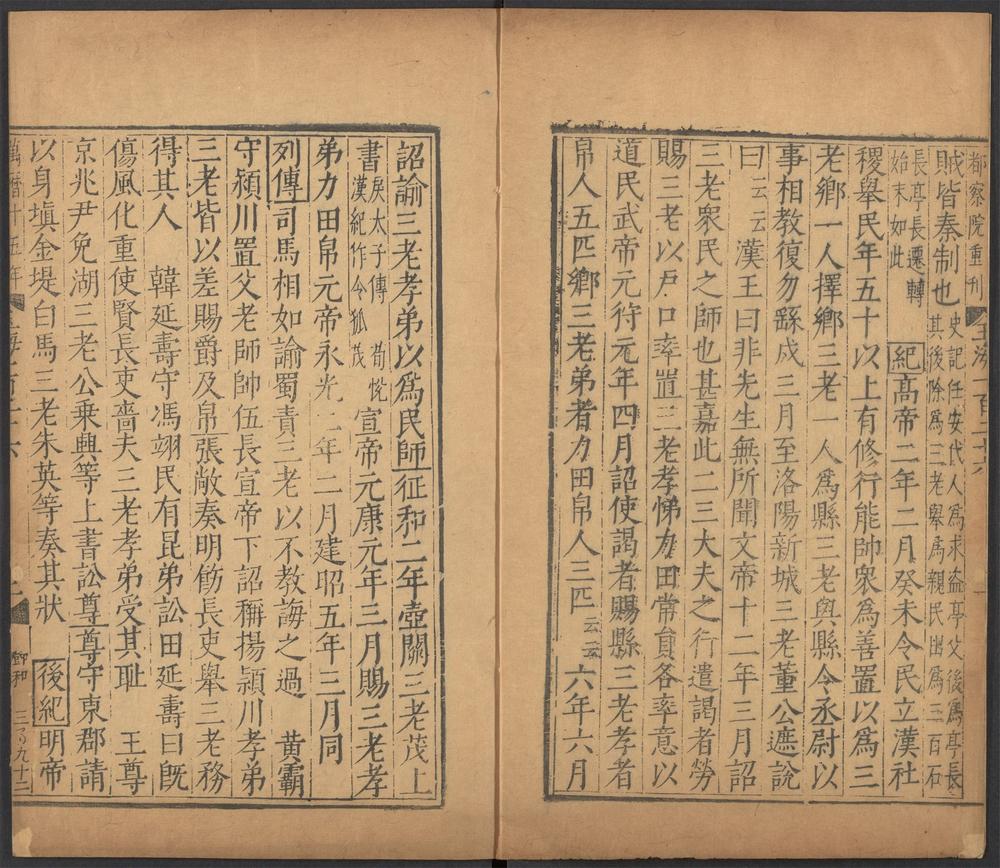 都察院重刊
玉海一百三十六
賊皆秦制也史記任安代人為求盜亭父後為亭長
其後除為三老舉為親民出為三百石
長亭長遷轉
始末如此
紀高帝二年二月癸未令民立漢社
稷舉民年五十以上有修行能帥衆為善置以為三
老鄉一人擇鄉三老一人為縣三老與縣令丞尉以
事相教復勿繇戍三月至洛陽新城三老董公遮說
曰云云漢王曰非先生無所聞文帝十二年三月詔
三老衆民之師也甚嘉此二三大夫之行遣謁者勞
賜三老以戸口率置三老孝悌力田常員各率意以
道民武帝元狩元年四月詔使謁者賜縣三老孝者
帛人五匹鄉三老弟者力田帛人三匹云云六年六月
詔諭三老孝弟以為民師征和二年壺關三老茂上
書戾太子傳荀悅
漢紀作令狐茂
宣帝元康元年三月賜三老孝
弟力田帛元帝永光二年二月建昭五年三月同
列傳司馬相如諭蜀責三老以不教誨之過　黃霸
守潁川置父老師帥伍長宣帝下詔稱揚潁川孝弟
三老皆以差賜爵及帛張敞奏明飭長吏舉三老務
得其人　韓延壽守馮翊民有昆弟訟田延壽曰旣
傷風化重使賢長吏嗇夫三老孝弟受其恥　王尊
京兆尹免湖三老公乘興等上書訟尊尊守東郡請
以身塡金堤白馬三老朱英等奏其狀　後紀明帝
萬曆十五年